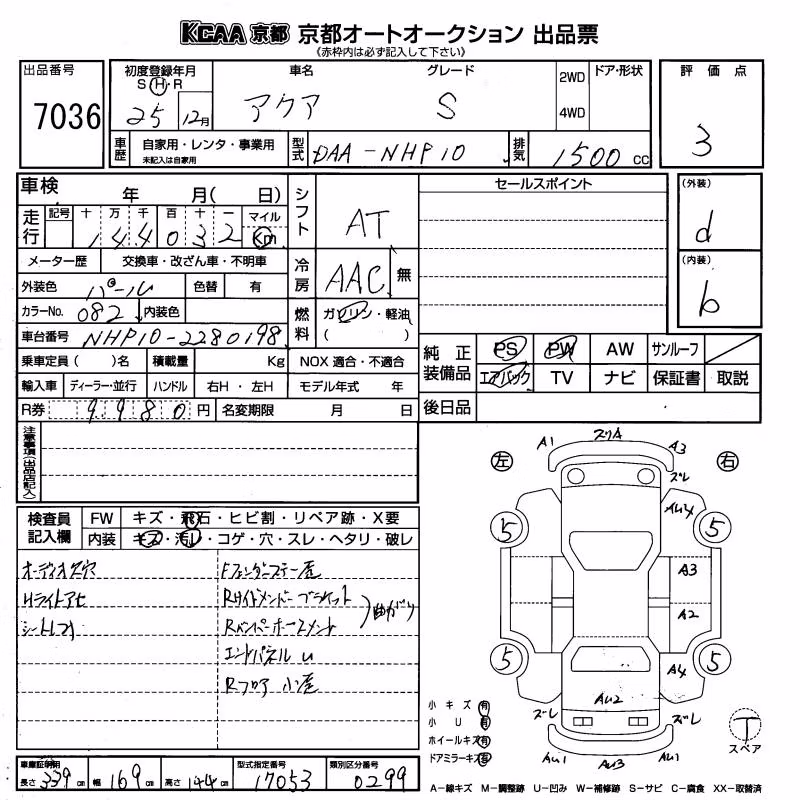 KCAA 京都 京都オートオークション 出品票
《赤枠内は必ず記入して下さい》
出品番号
7036
初度登録年月
S・H・R
25 12月
車名
アクア
グレード
S
2WD
4WD
ドア・形状
評価点
3
車歴
自家用・レンタ・事業用
未記入は自家用
型式
DAA-NHP10
排気
1500 CC
車検 年 月( 日)
走行
記号 十 万 千 百 十 一 マイル
144032 Km
メーター歴 交換車・改ざん車・不明車
外装色 パール 色替 有
カラーNo. 082 内装色
車台番号 NHP10-2280198
乗車定員( )名 積載量 Kg NOX 適合・不適合
輸入車 ディーラー・並行 ハンドル 右H・左H モデル年式 年
R券 9980円 名変期限 月 日
シフト
AT
冷房
AAC 無
燃料
ガソリン・軽油
( )
セールスポイント
(外装)
d
(内装)
b
純正装備品
PS PW AW サンルーフ
エアバック TV ナビ 保証書 取説
後日品
注意事項(出品店記入)
検査員記入欄
FW キズ・飛石・ヒビ割・リペア跡・X要
内装 キズ・汚れ・コゲ・穴・スレ・ヘタリ・破レ
オーディオ欠穴
Hライトアセ
Fフェンダーステー歪
Rサイドメンバーブラケット
Rバンパーホースメント
曲がり
エンドパネルU
Rフロア小歪
左 右
A1 スリA A3
ズレ
AU4
5 5
A3
A2
5 5
A4
AU2
ズレ ズレ
AU1 AU3 AU1
小キズ 有
小U 有
ホイールキズ 有
ドアミラーキズ 有
T
スペア
車庫証明用
長さ 339cm 幅 169cm 高さ 144cm
型式指定番号
17053
類別区分番号
0299
A-線キズ M-調整跡 U-凹み W-補修跡 S-サビ C-腐食 XX-取替済